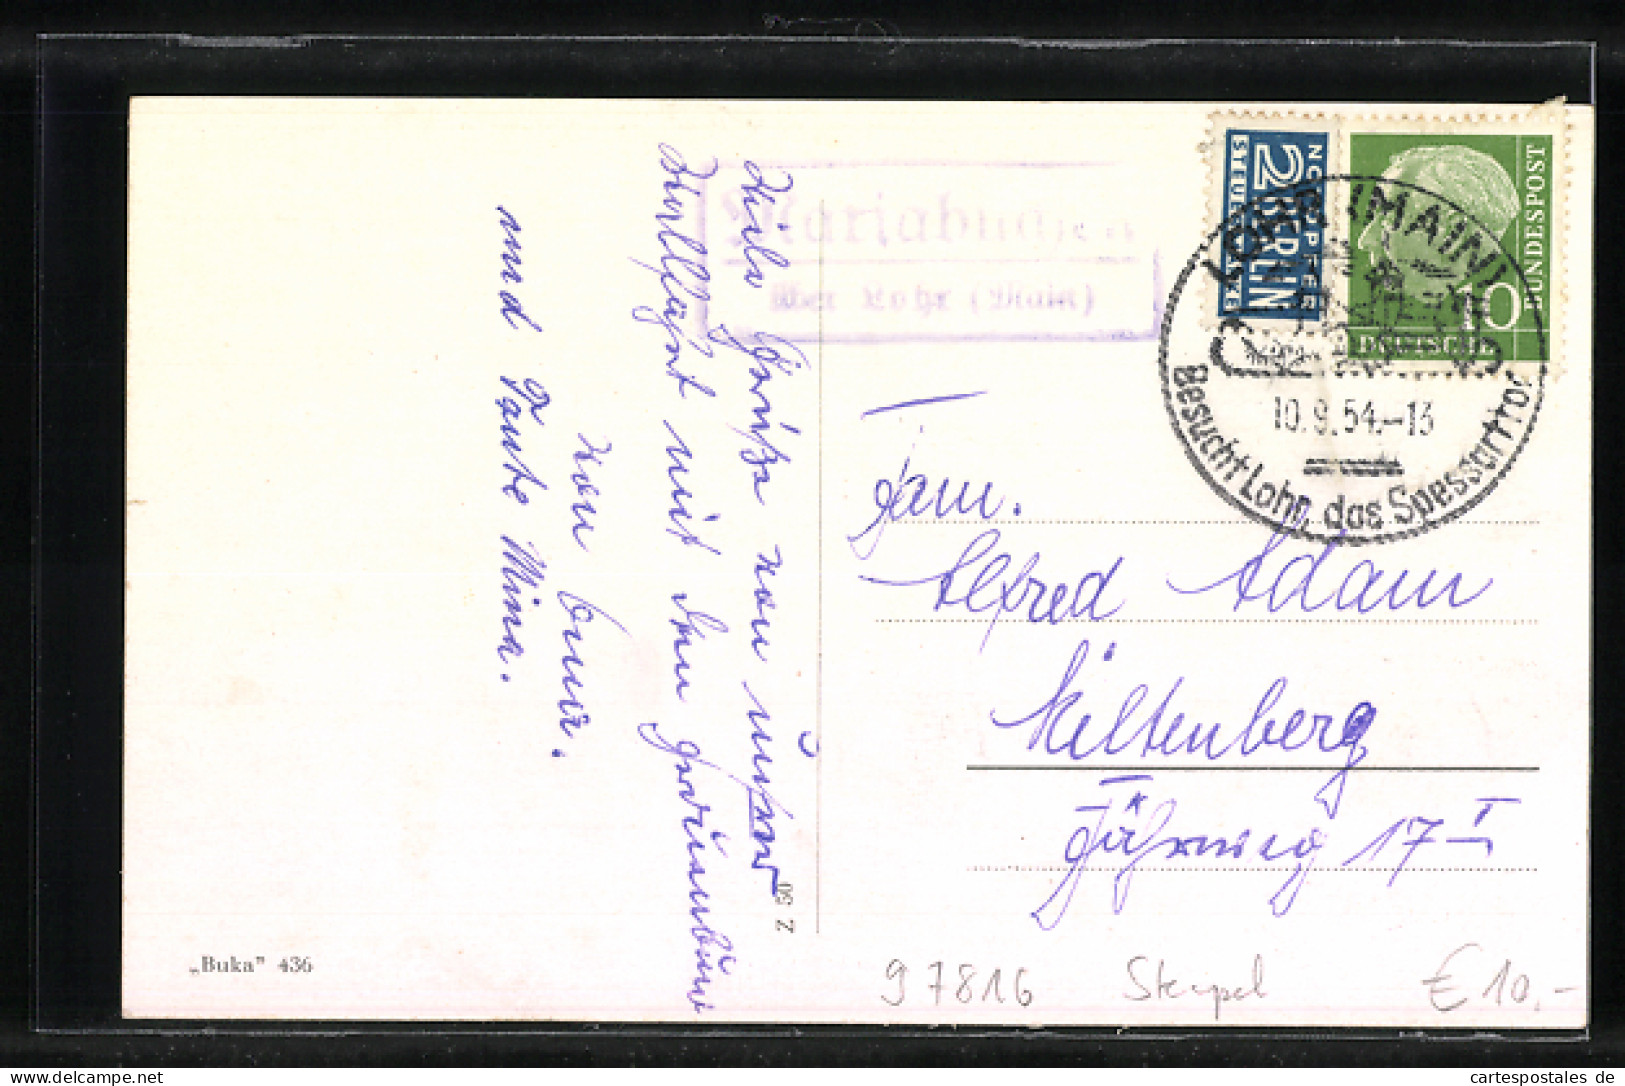 Viele Grüße von unserer
Wallfahrt mit dem
von
und Tante Mina.
„Buka" 436
Z 50
Mariabuchen
über Lohr (Main)
NOTOPFER
2 BERLIN
STEUERMARKE
DEUTSCHE
BUNDESPOST
10
LOHR (MAIN)
10.9.54.-13
Besucht Lohr, das Spessarttor
Fam.
Alfred Adam
Miltenberg
17 I
97816 Stempel € 10.-
cartespostales de